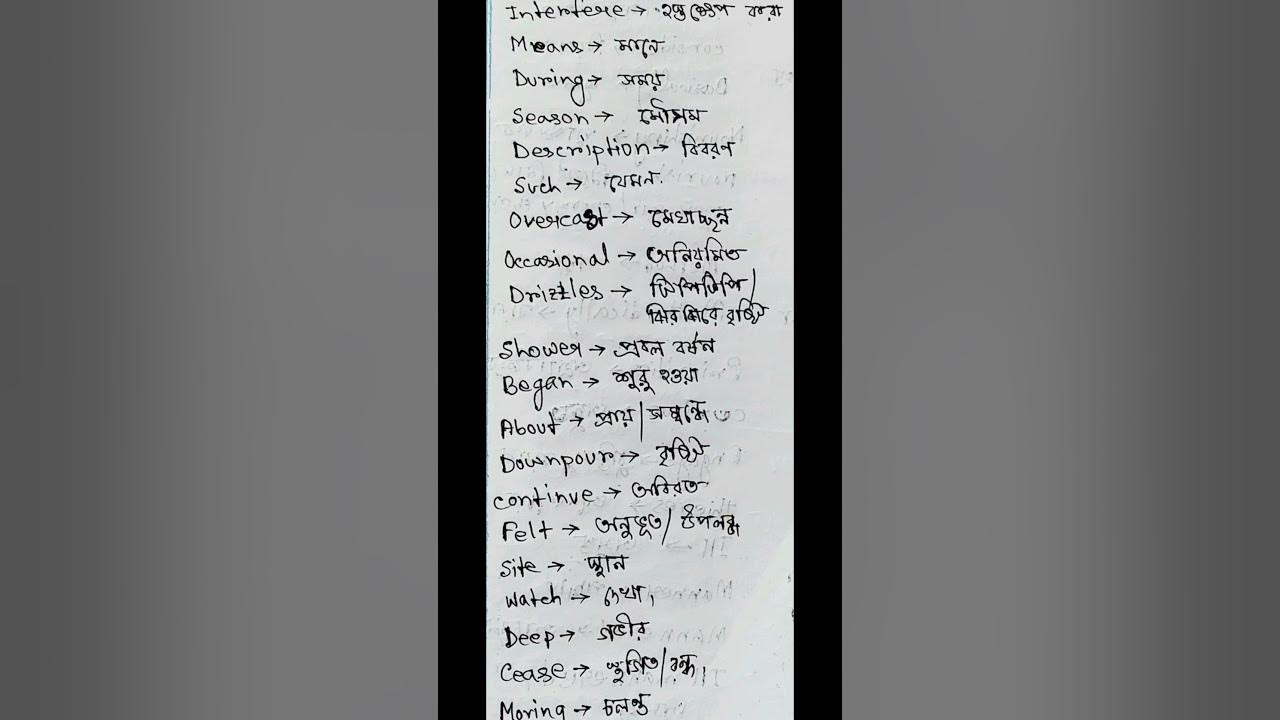 Interfere → হস্তক্ষেপ করা
Means → মানে
During → সময়
Season → মৌসম
Description → বিবরণ
Such → যেমন.
Overcast → মেঘাচ্ছন্ন
Occasional → অনিয়মিত
Drizzles → টিপিটিপি/
ঝিরঝিরে বৃষ্টি
Shower → প্রবল বর্ষন
Began → শুরু হওয়া
About → প্রায়/সম্বন্ধে
Downpour → বৃষ্টি
continue → অবিরত
Felt → অনুভূত/উপলব্ধ
Site → স্থান
Watch → দেখা,
Deep → গভীর
Cease → স্থগিত/বন্ধ,
Moving → চলন্ত